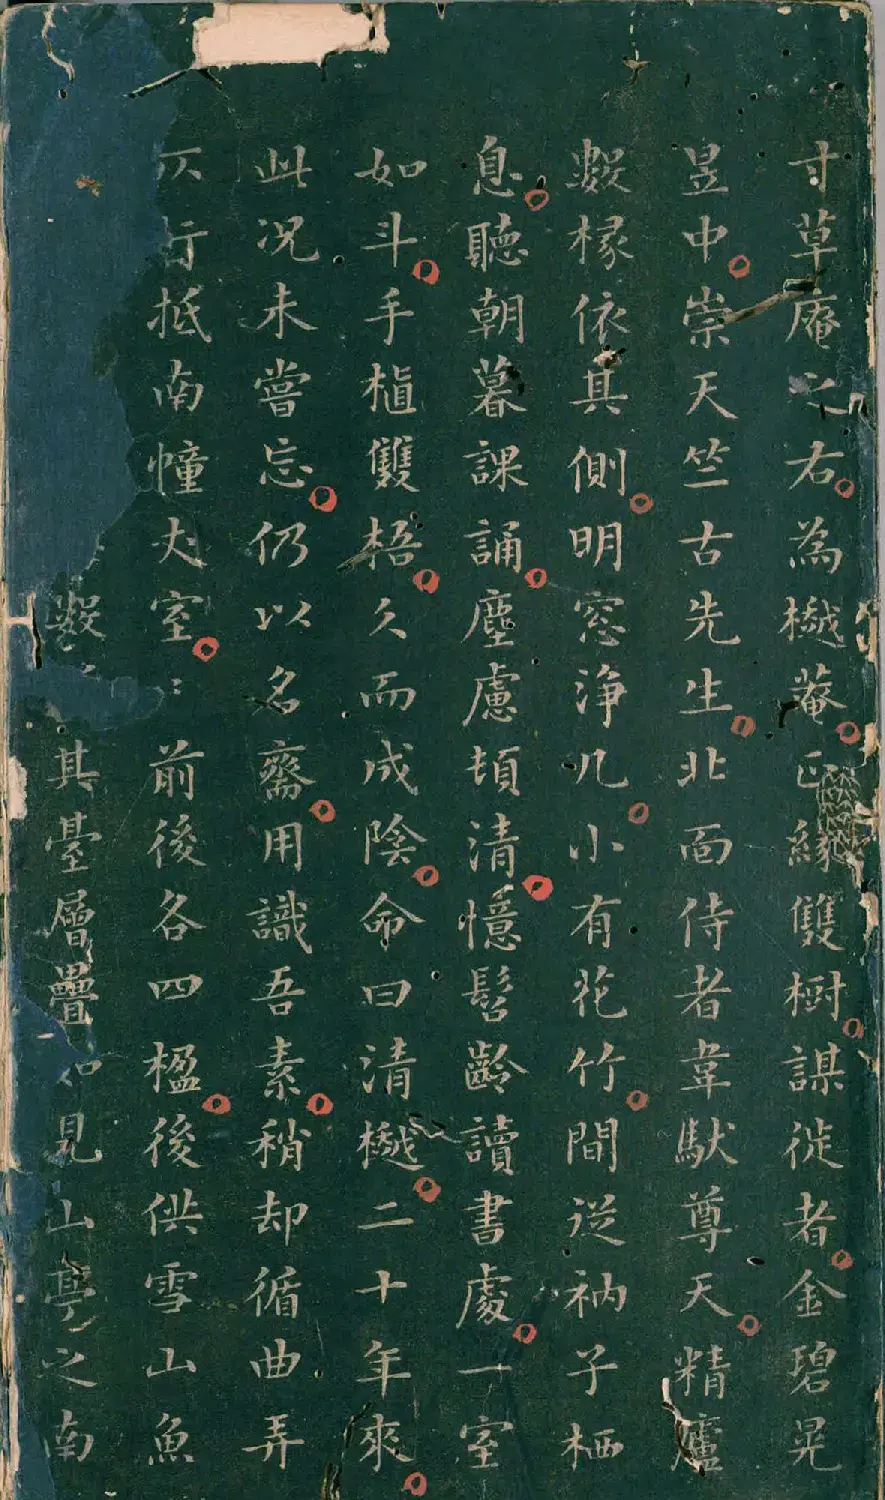 寸草庵之右為樾菴正緣雙樹謀從者金碧晃
昱中崇天竺古先生北面侍者韋馱尊天精廬
數椽依其側明窓淨几小有花竹間從衲子栖
息聽朝暮課誦塵慮頓清憶髫齡讀書處一室
如斗手植雙梧久而成陰命曰清樾二十年來
此况未嘗忘仍以名齋用識吾素稍却循曲弄
抵南幢丈室:前後各四楹後供雪山魚
其臺層疊見山亭之南